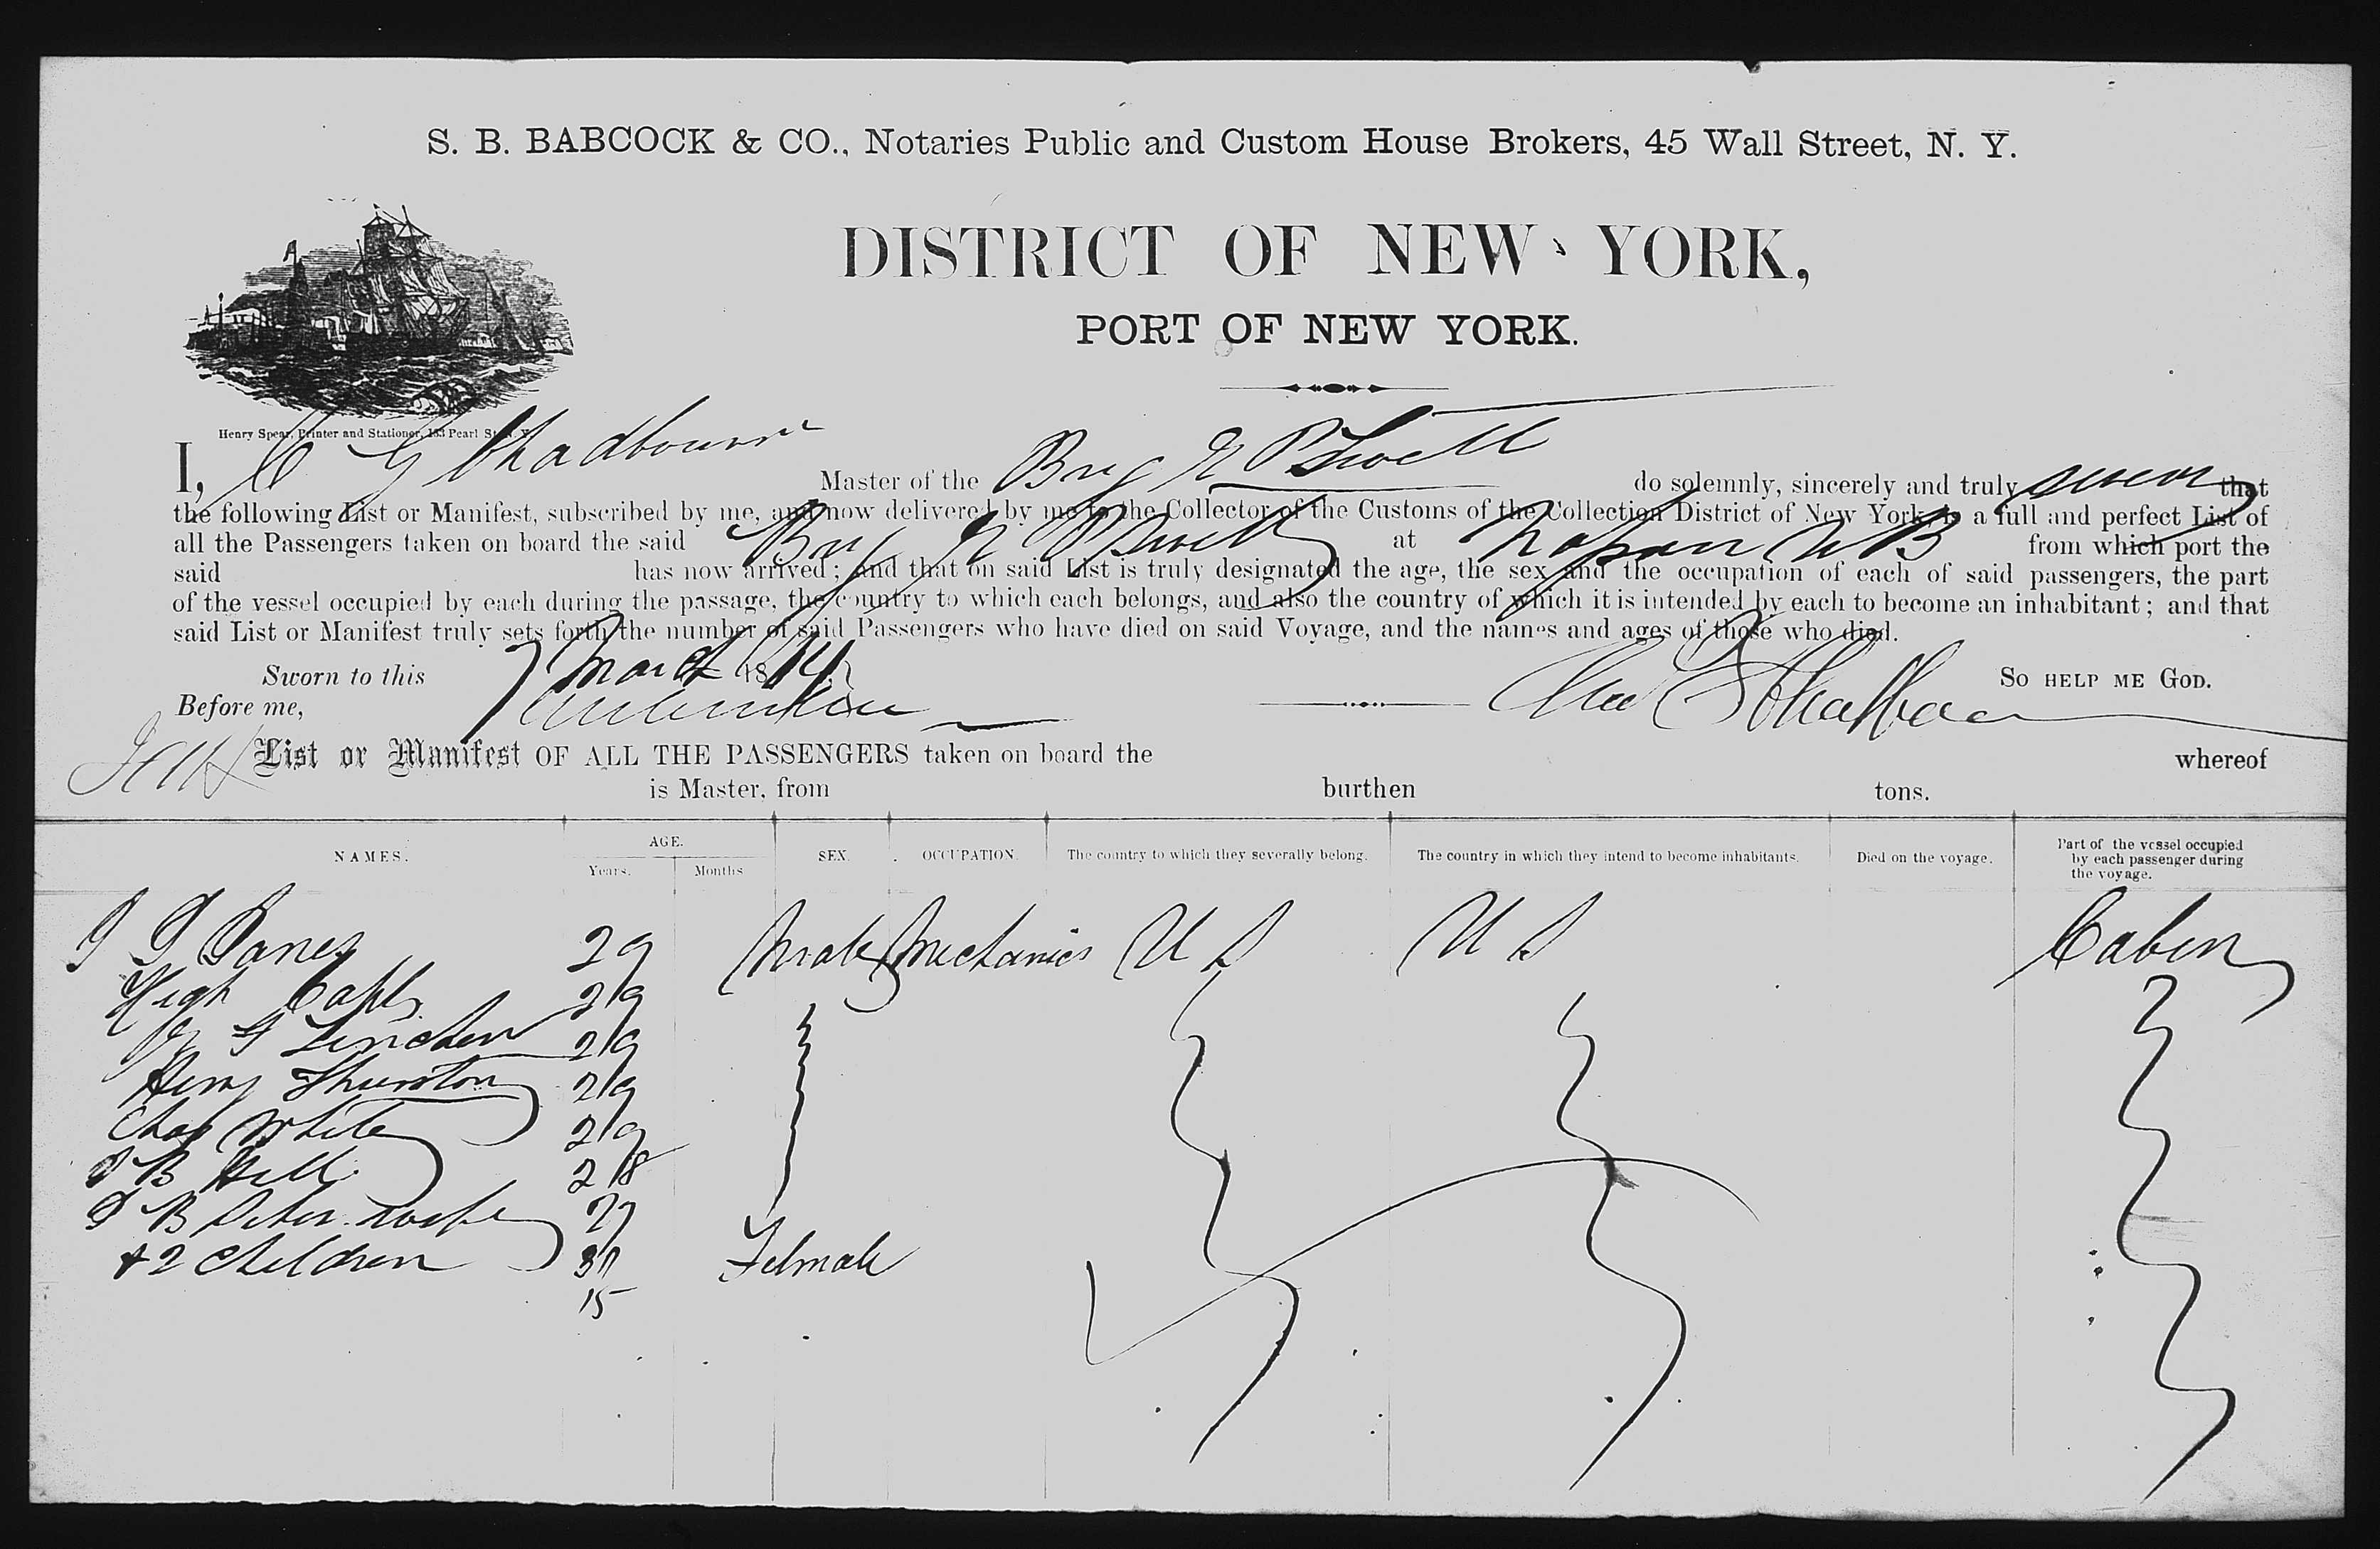 S. B. BABCOCK & CO., Notaries Public and Custom House Brokers, 45 Wall Street, N. Y.
DISTRICT OF NEW YORK,
PORT OF NEW YORK.
Henry Spear, Printer and Stationer, 133 Pearl St. N. Y.
I, G Chadbourne Master of the Brig do solemnly, sincerely and truly swear that
the following List or Manifest, subscribed by me, and now delivered by me to the Collector of the Customs of the Collection District of New York, is a full and perfect List of
all the Passengers taken on board the said Brig at from which port the
said has now arrived; and that on said List is truly designated the age, the sex and the occupation of each of said passengers, the part
of the vessel occupied by each during the passage, the country to which each belongs, and also the country of which it is intended by each to become an inhabitant; and that
said List or Manifest truly sets forth the number of said Passengers who have died on said Voyage, and the names and ages of those who died.
Sworn to this 7 March 18 So help me God.
Before me,
List or Manifest OF ALL THE PASSENGERS taken on board the whereof
is Master, from burthen tons.
NAMES. AGE. Years. Months SEX. OCCUPATION. The country to which they severally belong. The country in which they intend to become inhabitants. Died on the voyage. Part of the vessel occupied by each passenger during the voyage.
29 Male Mechanics U S U S Cabin
High 29
29
Henry Thurston 29
Chas White 29
B Hill 28
B wife 27
+ 2 children Felmale
15